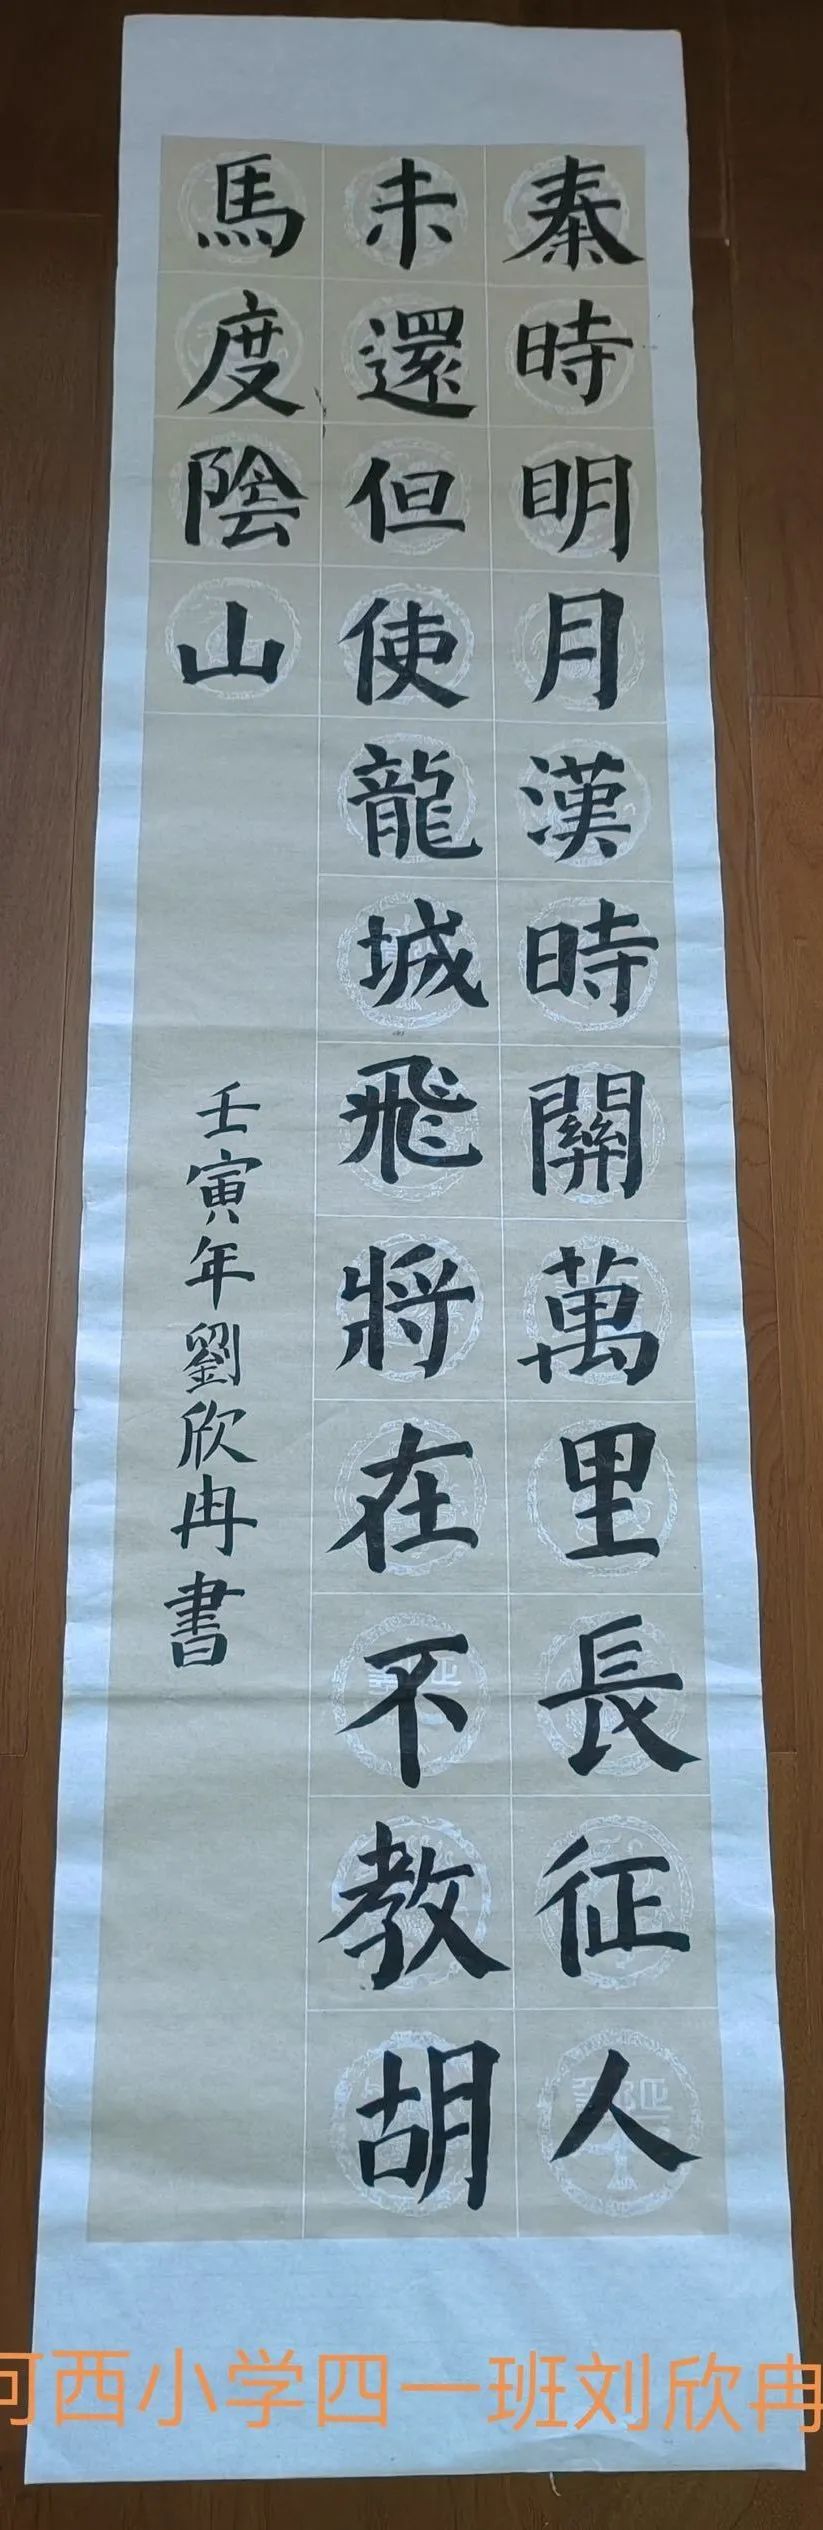 秦時明月漢時關萬里長征人
未還但使龍城飛將在不教胡
馬度陰山
壬寅年劉欣冉書
河西小学四一班刘欣冉